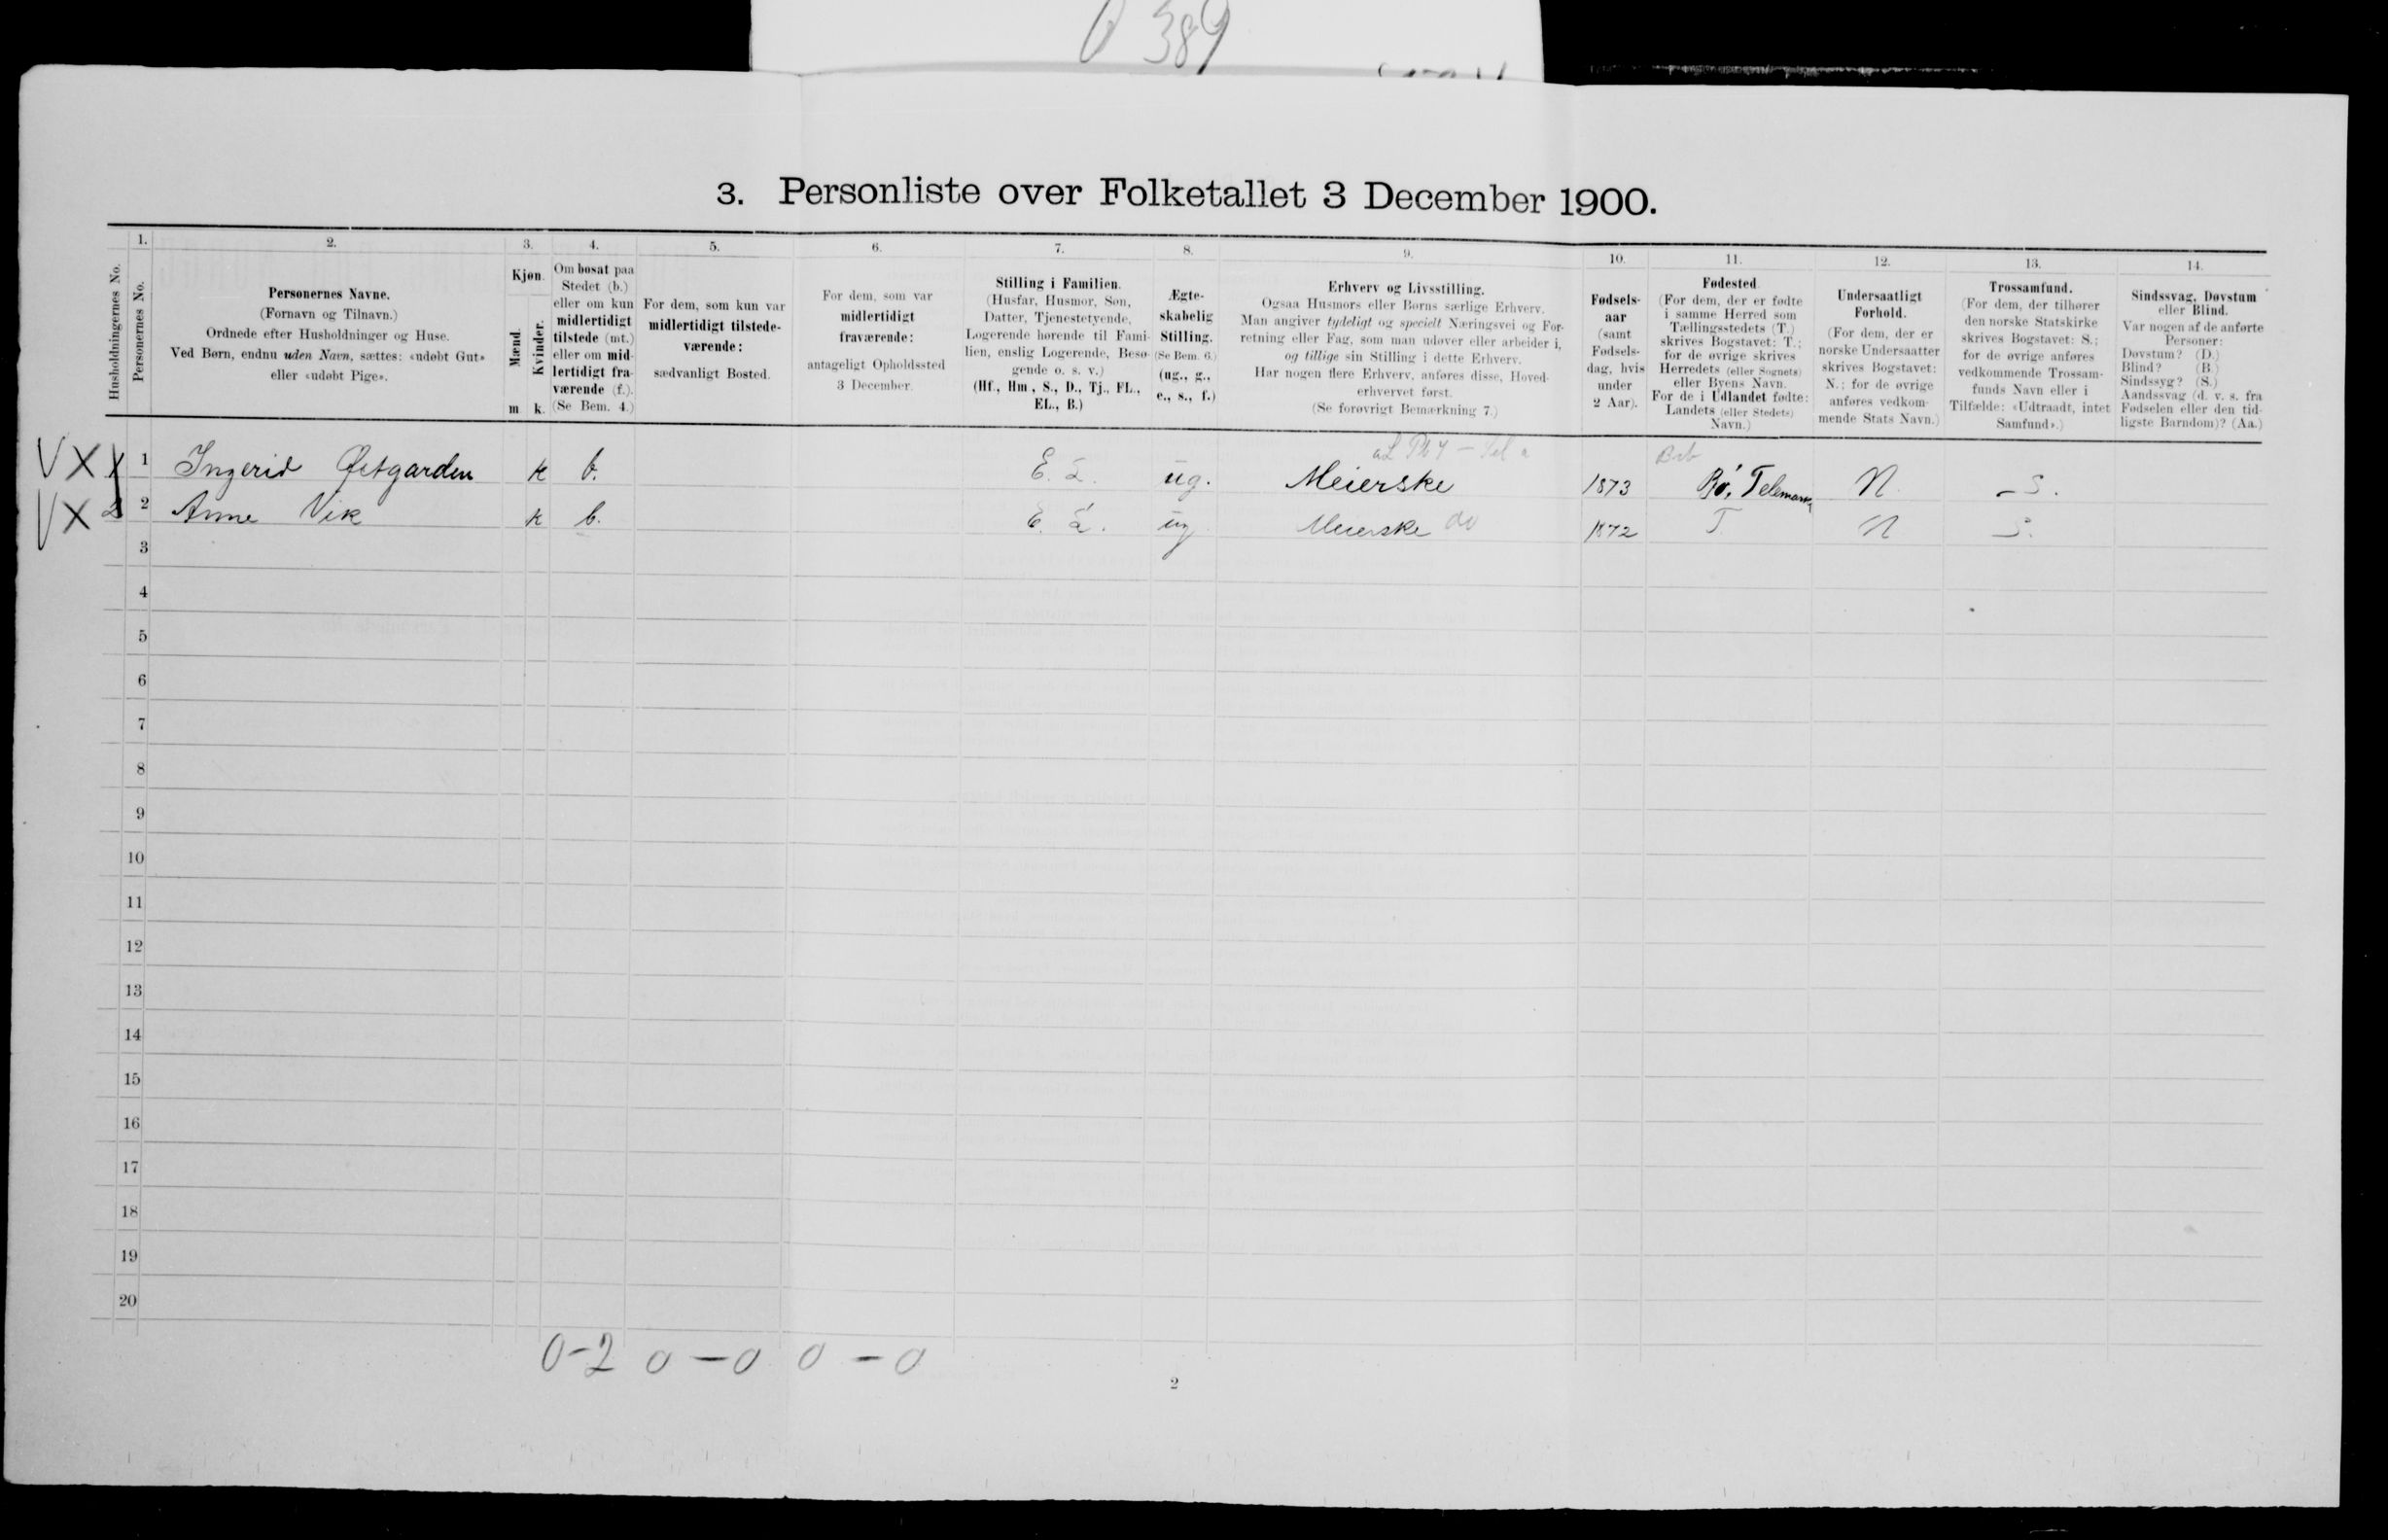 0 389
3. Personliste over Folketallet 3 December 1900.
1. 2. 3. 4. 5. 6. 7. 8. 9. 10. 11. 12. 13. 14.
Husholdningernes No.
Personernes No.
Personernes Navne.
(Fornavn og Tilnavn.)
Ordnede efter Husholdninger og Huse.
Ved Børn, endnu uden Navn, sættes: «udøbt Gut»
eller «udøbt Pige».
Kjøn.
Mænd.
Kvinder.
m k.
Om bosat paa
Stedet (b.)
eller om kun
midlertidigt
tilstede (mt.)
eller om mid-
lertidigt fra-
værende (f.).
(Se Bem. 4.)
For dem, som kun var
midlertidigt tilstede-
værende:
sædvanligt Bosted.
For dem, som var
midlertidigt
fraværende:
antageligt Opholdssted
3 December.
Stilling i Familien.
(Husfar, Husmor, Søn,
Datter, Tjenestetyende,
Logerende hørende til Fami-
lien, enslig Logerende, Besø-
gende o. s. v.)
(Hf., Hm., S., D., Tj., FL.,
EL., B.)
Ægte-
skabelig
Stilling.
(Se Bem. 6.)
(ug., g.,
e., s., f.)
Erhverv og Livsstilling.
Ogsaa Husmors eller Børns særlige Erhverv.
Man angiver tydeligt og specielt Næringsvei og For-
retning eller Fag, som man udøver eller arbeider i,
og tillige sin Stilling i dette Erhverv.
Har nogen flere Erhverv, anføres disse, Hoved-
erhvervet først.
(Se forøvrigt Bemærkning 7.)
Fødsels-
aar
(samt
Fødsels-
dag, hvis
under
2 Aar).
Fødested
(For dem, der er fødte
i samme Herred som
Tællingsstedets (T.)
skrives Bogstavet: T.;
for de øvrige skrives
Herredets (eller Sognets)
eller Byens Navn.
For de i Udlandet fødte:
Landets (eller Stedets)
Navn.)
Undersaatligt
Forhold.
(For dem, der er
norske Undersaatter
skrives Bogstavet:
N.; for de øvrige
anføres vedkom-
mende Stats Navn.)
Trossamfund.
(For dem, der tilhører
den norske Statskirke
skrives Bogstavet: S.;
for de øvrige anføres
vedkommende Trossam-
funds Navn eller i
Tilfælde: «Udtraadt, intet
Samfund».)
Sindssvag, Døvstum
eller Blind.
Var nogen af de anførte
Personer:
Døvstum? (D.)
Blind? (B.)
Sindssyg? (S.)
Aandssvag (d. v. s. fra
Fødselen eller den tid-
ligste Barndom)? (Aa.)
V X X 1 Ingerid Østgarden k b. E. L. ug. Meierske 1873 Bø, Telemarken N. S.
V X 2 2 Anne Vik k b. E. L. ug Meierske do 1872 T. N S.
3
4
5
6
7
8
9
10
11
12
13
14
15
16
17
18
19
20
0-2 0-0 0-0
2